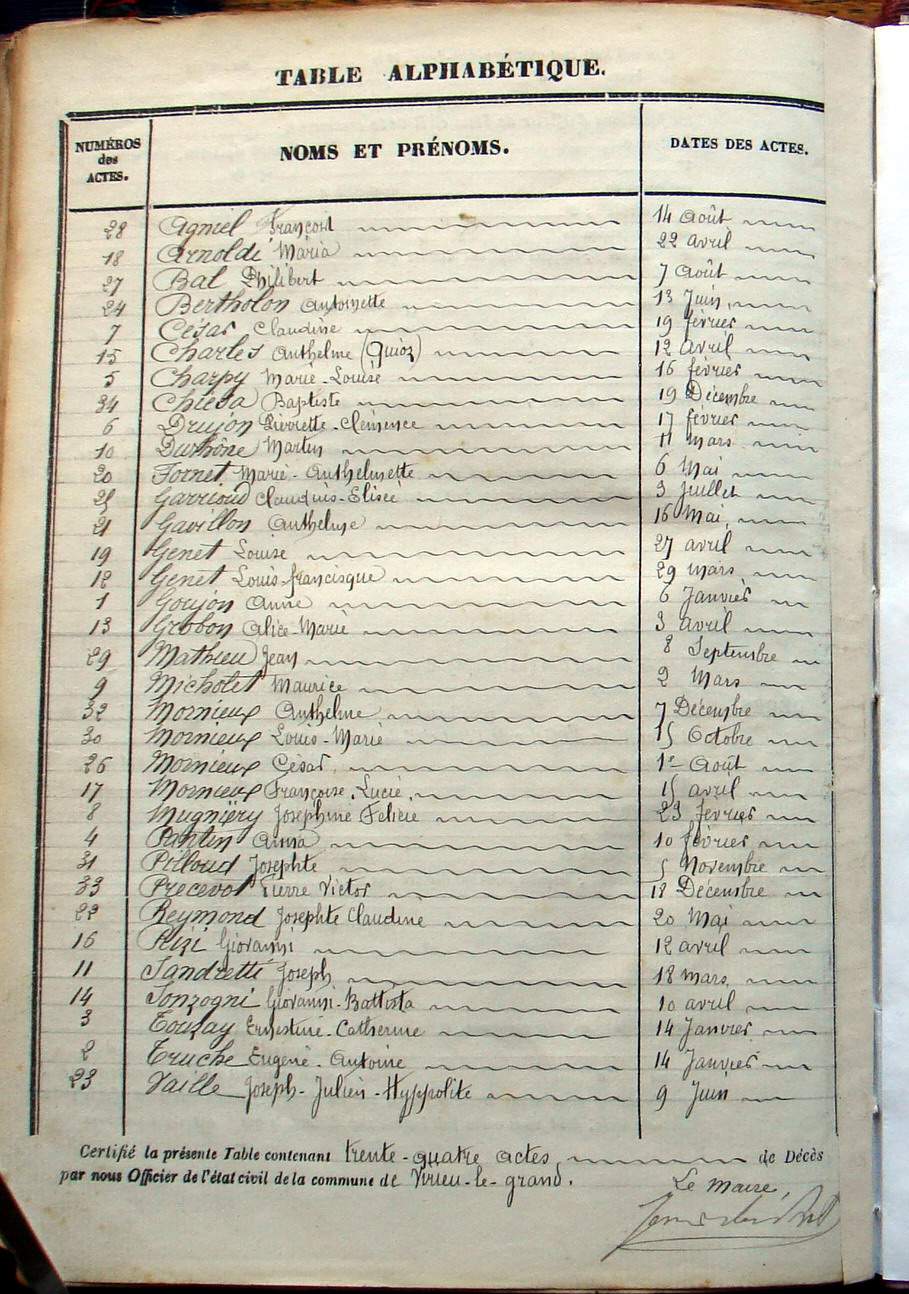 TABLE ALPHABÉTIQUE.
NUMÉROS des ACTES. NOMS ET PRÉNOMS. DATES DES ACTES.
28 Agniel François 14 Août
18 Arnoldi Maria 22 avril
27 Bal Philibert 7 Août
24 Bertholon Antoinette 13 Juin
7 César Claudine 19 février
15 Charles Anthelme (Guioz) 12 avril
5 Charpy Marie-Louise 16 février
34 Chiesa Baptiste 19 Décembre
6 Drujon Pierrette-Clémence 17 février
10 Durhône Martin 11 mars
20 Fornet Marie-Anthelmette 6 Mai
25 Garrioud Claudius-Elisée 3 Juillet
21 Gavillon Anthelme 16 Mai
19 Genet Louise 27 avril
12 Genet Louis-francisque 29 mars
1 Goujon Anne 6 Janvier
13 Grobon Alice-Marie 3 avril
29 Mathieu Jean 8 Septembre
9 Micholet Maurice 2 Mars
32 Mornieux Anthelme 7 Décembre
30 Mornieux Louis-Marie 15 Octobre
26 Mornieux César 1er Août
17 Mornieux Françoise, Lucie 15 avril
8 Mugniéry Josephine Felicie 23 février
4 Pantin Anna 10 février
31 Pilloud Josephte 5 Novembre
33 Precevot Pierre Victor 18 Décembre
22 Reymond Josephte Claudine 20 Mai
16 Rizi Giovanni 12 avril
11 Sandretti Joseph 18 mars
14 Sonzogni Giovanni-Battista 10 avril
3 Touzay Ernestine-Catherine 14 Janvier
2 Truche Eugène-Antoine 14 Janvier
23 Vaille Joseph-Julien-Hyppolite 9 Juin
Certifié la présente Table contenant trente-quatre actes de Décès
par nous Officier de l'état civil de la commune de Virieu-le-grand.
Le Maire,